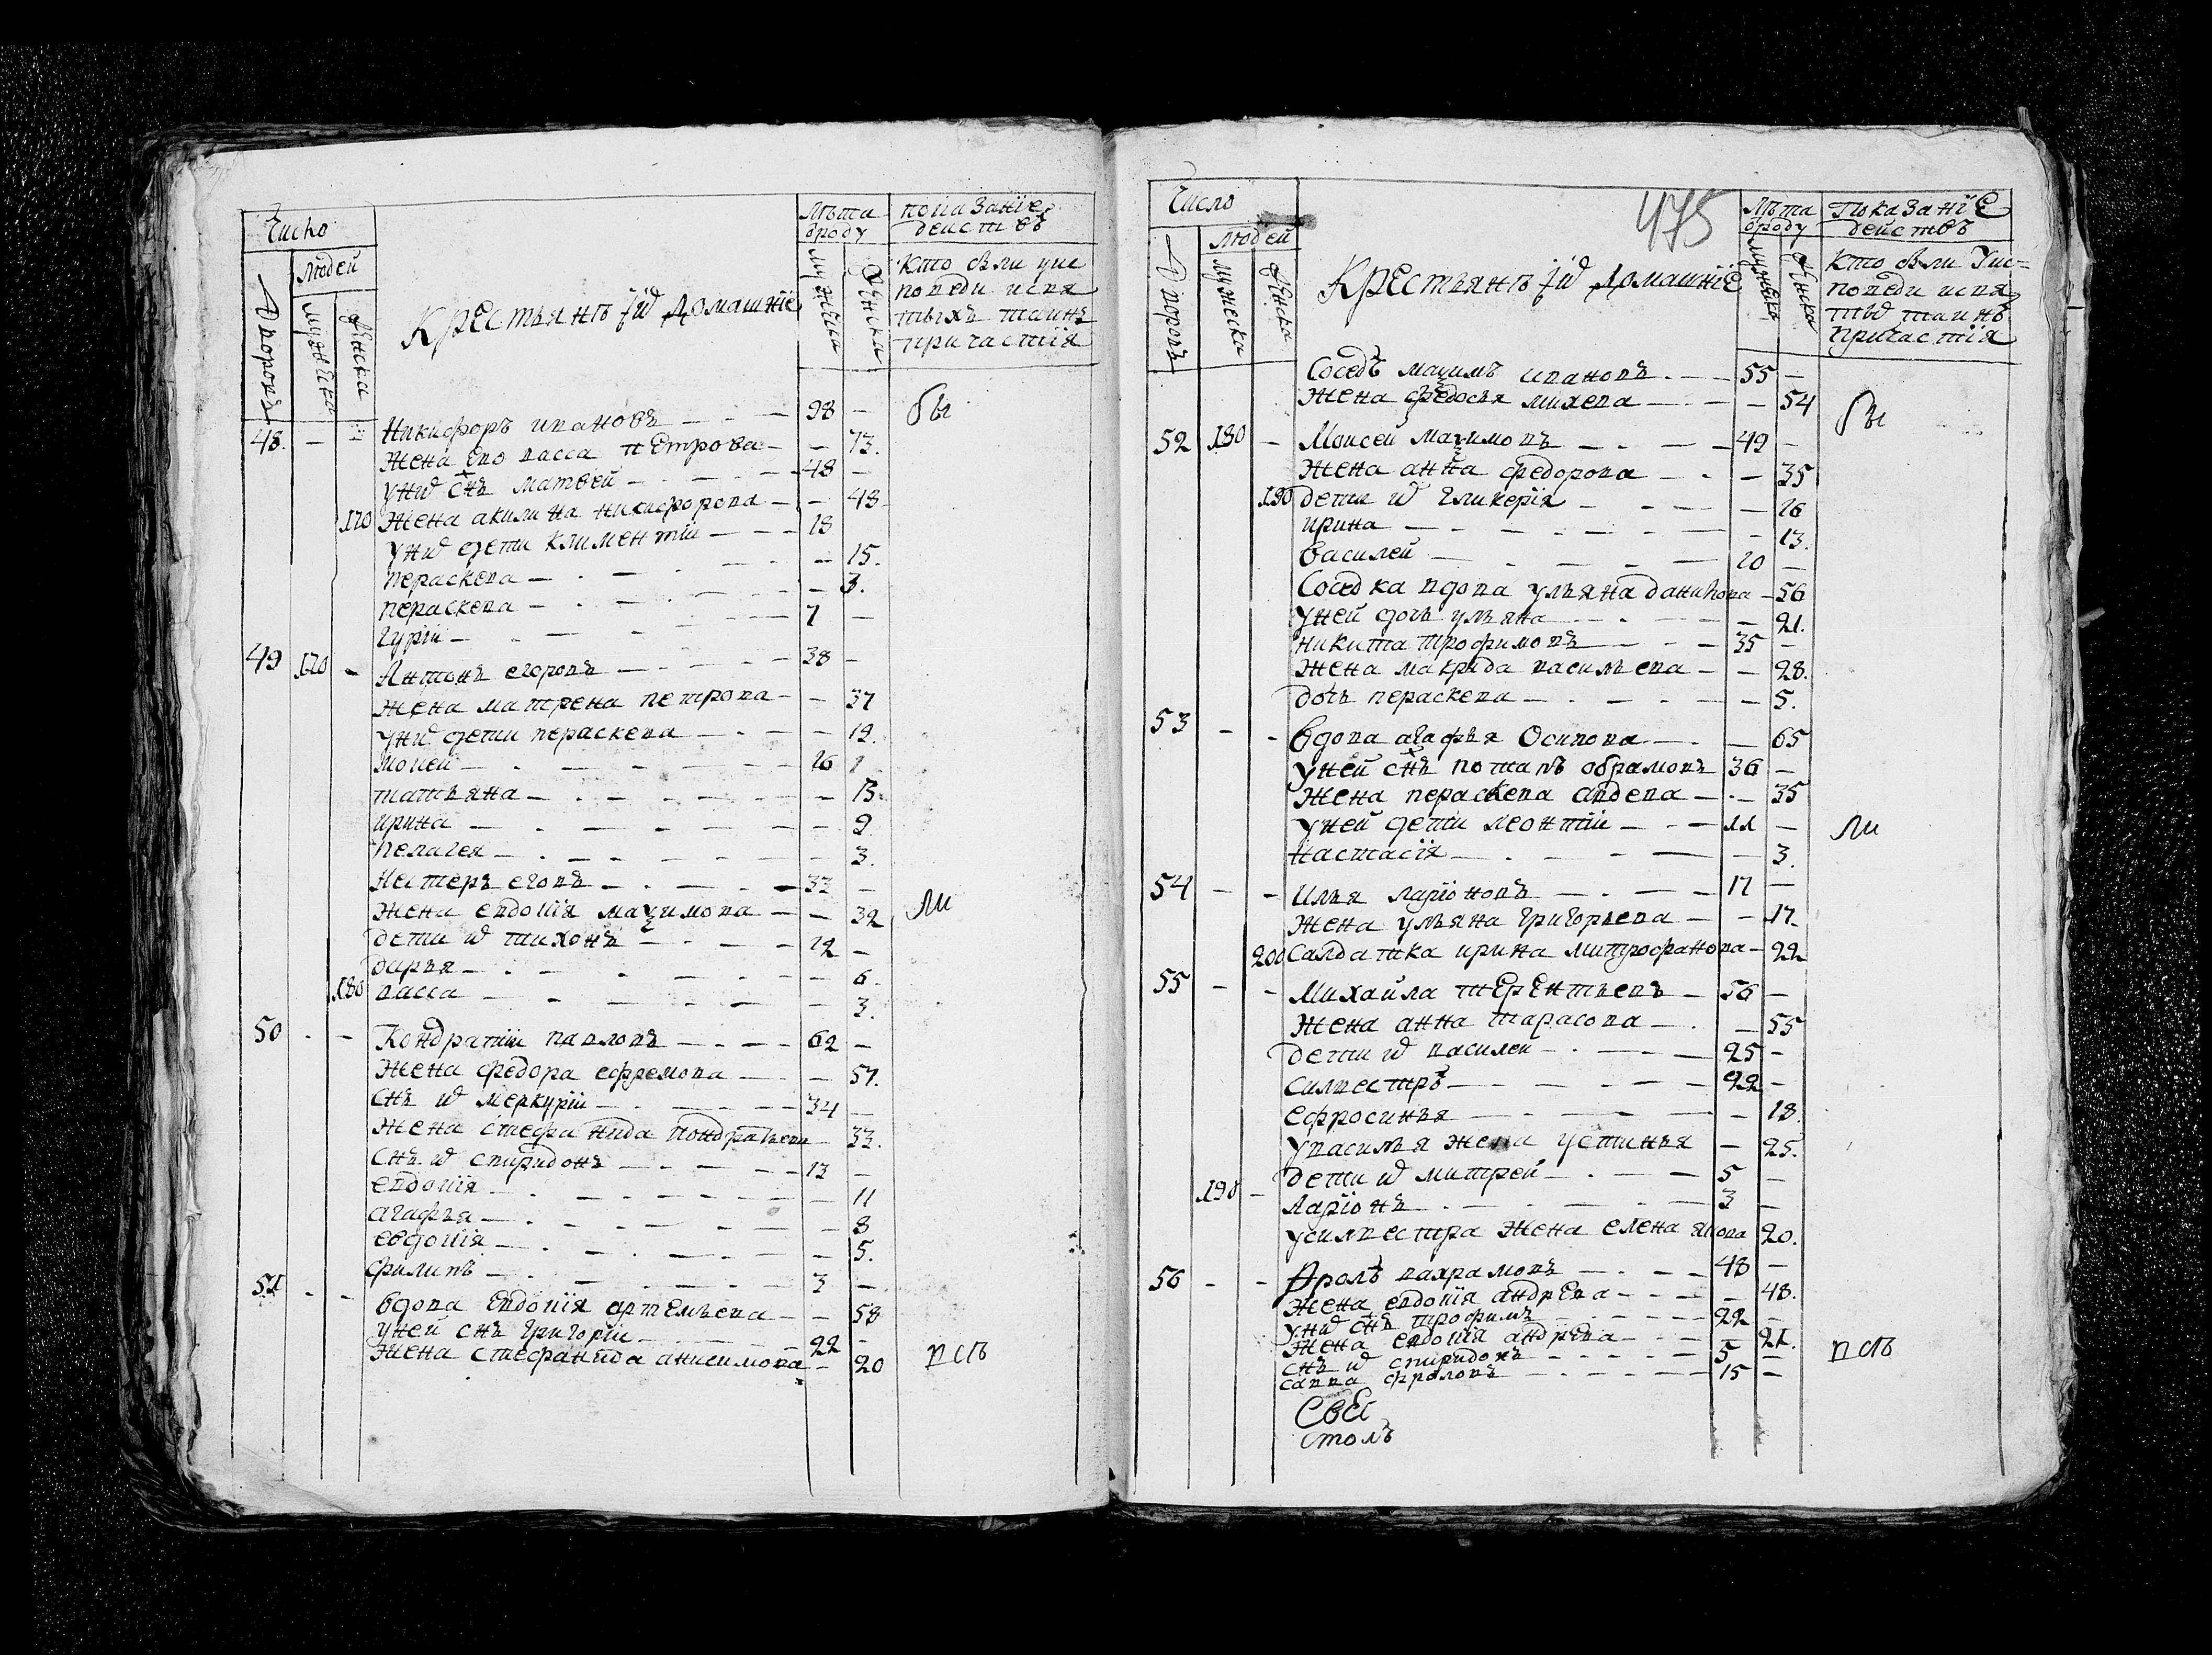 Число
Людей
Дворовъ
мужеска
женска
Крестьянѣ їѡ Домашнїе
Лѣта
ѿроду
мужеска
женска
показанїе
действъ
Кто былъ уис
поведи исвя
тыхъ таинъ
причастїя
48. — — Никифоръ ивановъ — — 98 — бы
Жена ево васса петрова — — 73.
унид снъ матвей — — 48 —
170 Жена акилина никифорова — — 48
унид дети климентїи — — 18
пераскева — — 15.
пераскева — — 3.
гурїи — 7 —
49 170 - Антонъ егоровъ — 38 —
Жена матрена петрова — — 37
унид дети пераскева — — 19.
мокей — 16
татьяна — — 13.
ирина — — 9
пелагея — — 3.
Нестеръ еговъ — 33 —
Жена евдокїя маѯимова — — 32 ли
дети ид тихонъ — 12 —
дарья — — 6.
180 васса — — 3.
50 - - Кондратїи павловъ — 62 —
Жена федора ефремова — — 57.
снъ ид меркурїи — 34 —
Жена стефанида кондратьева — 33.
снъ ид спиридонъ — 13 —
евдокїя — — 11
агафья — — 8
евдокїя — — 5.
филипъ — 3 —
51 - - вдова Евдокїя артемьева — — 58
уней снъ григорїи — 22 —
Жена стефанида анисимова — 20 всѣ
Число
Людей
Дворовъ
мужеска
женска
475
Крестьянѣ їѡ Домашнїе
Лѣта
ѿроду
мужеска
женска
Показанїе
действъ
Кто былъ Уис=
поведи исвя
тыѡ таинъ
причастїя
Соседъ маѯимъ ивановъ — 55 —
Жена федосья михева — — 54 бы
52 180 - Моисей маѯимовъ — 49 —
Жена анна федорова — — 35
190 дети ид гликерїя — — 16
ирина — — 13.
василей — 10 —
Соседка вдова ульяна данилова — 56
уней дочь ульяна — — 21.
никита трофимовъ — 35 —
Жена макрида васильева — — 28.
дочь пераскева — — 5.
53 - - вдова агафья Осипова — — 65
уней снъ потапъ обрамовъ 36 —
Жена пераскева авдева — — 35
уней дети леонтїи — 11 — ли
настасїя — — 3.
54 - - Илья ларїоновъ — 17 —
Жена ульяна григорьева — — 17.
200 Салдатка ирина митрофанова — 22
55 - - Михайла терентьевъ — 56 —
Жена анна тарасова — — 55
дети ид василей — 25 —
силвестръ — 22 —
ефросинья — — 18.
увасилья жена устинья — 25.
дети ид митрей — 5 —
190 - ларїонъ — 3 —
усилвестра жена елена 20.
56 - - Фролъ вахрамовъ — 48 —
Жена евдокїя андрева — — 48.
унид снъ трофимъ — 22 —
Жена евдокїя андрева — — 21.
снъ ид спиридонъ — 5 — всѣ
савва фроловъ — 15 —